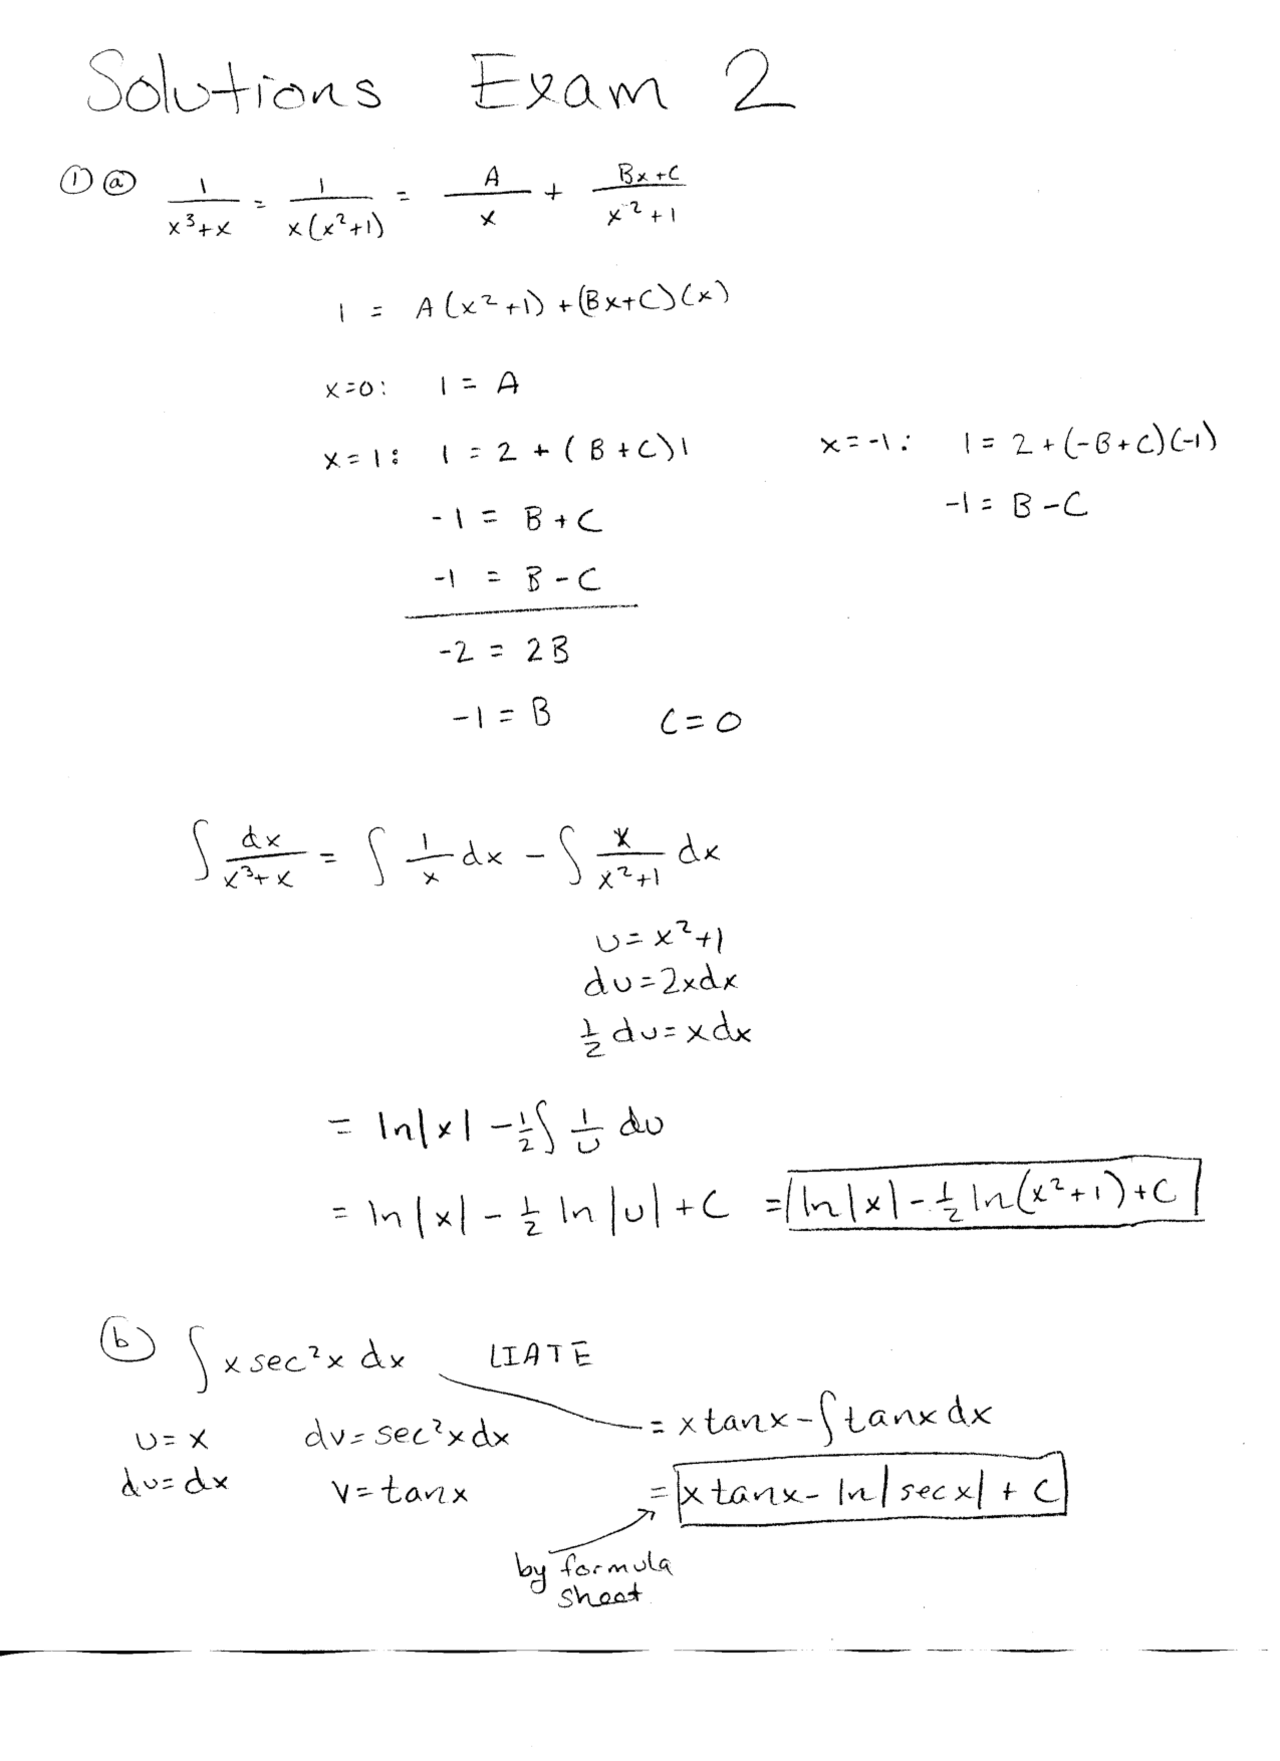 Solutions Exam 2
① ⓐ 1/(x³+x) = 1/(x(x²+1)) = A/x + (Bx+C)/(x²+1)
1 = A(x²+1) + (Bx+C)(x)
x=0: 1 = A
x=1: 1 = 2 + (B+C)1 x=-1: 1 = 2 + (-B+C)(-1)
-1 = B+C -1 = B-C
-1 = B-C
-2 = 2B
-1 = B C=0
∫ dx/(x³+x) = ∫ 1/x dx - ∫ x/(x²+1) dx
u=x²+1
du=2xdx
½ du = xdx
= ln|x| - ½∫ 1/u du
= ln|x| - ½ ln|u| + C = ln|x| - ½ ln(x²+1) + C
ⓑ ∫ x sec²x dx LIATE
= x tanx - ∫ tanx dx
u=x dv=sec²xdx
du=dx v=tanx
= x tanx - ln|secx| + C
by formula
sheet